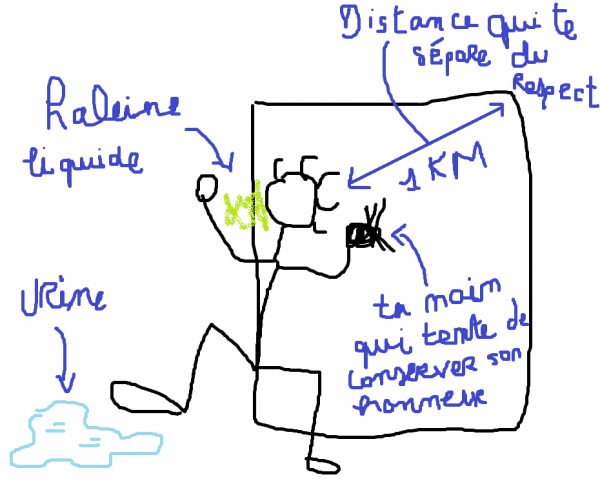 Distance qui te
sépare du
Respect
1 KM
haleine
liquide
urine
ta main
qui tente de
conserver son
honneur